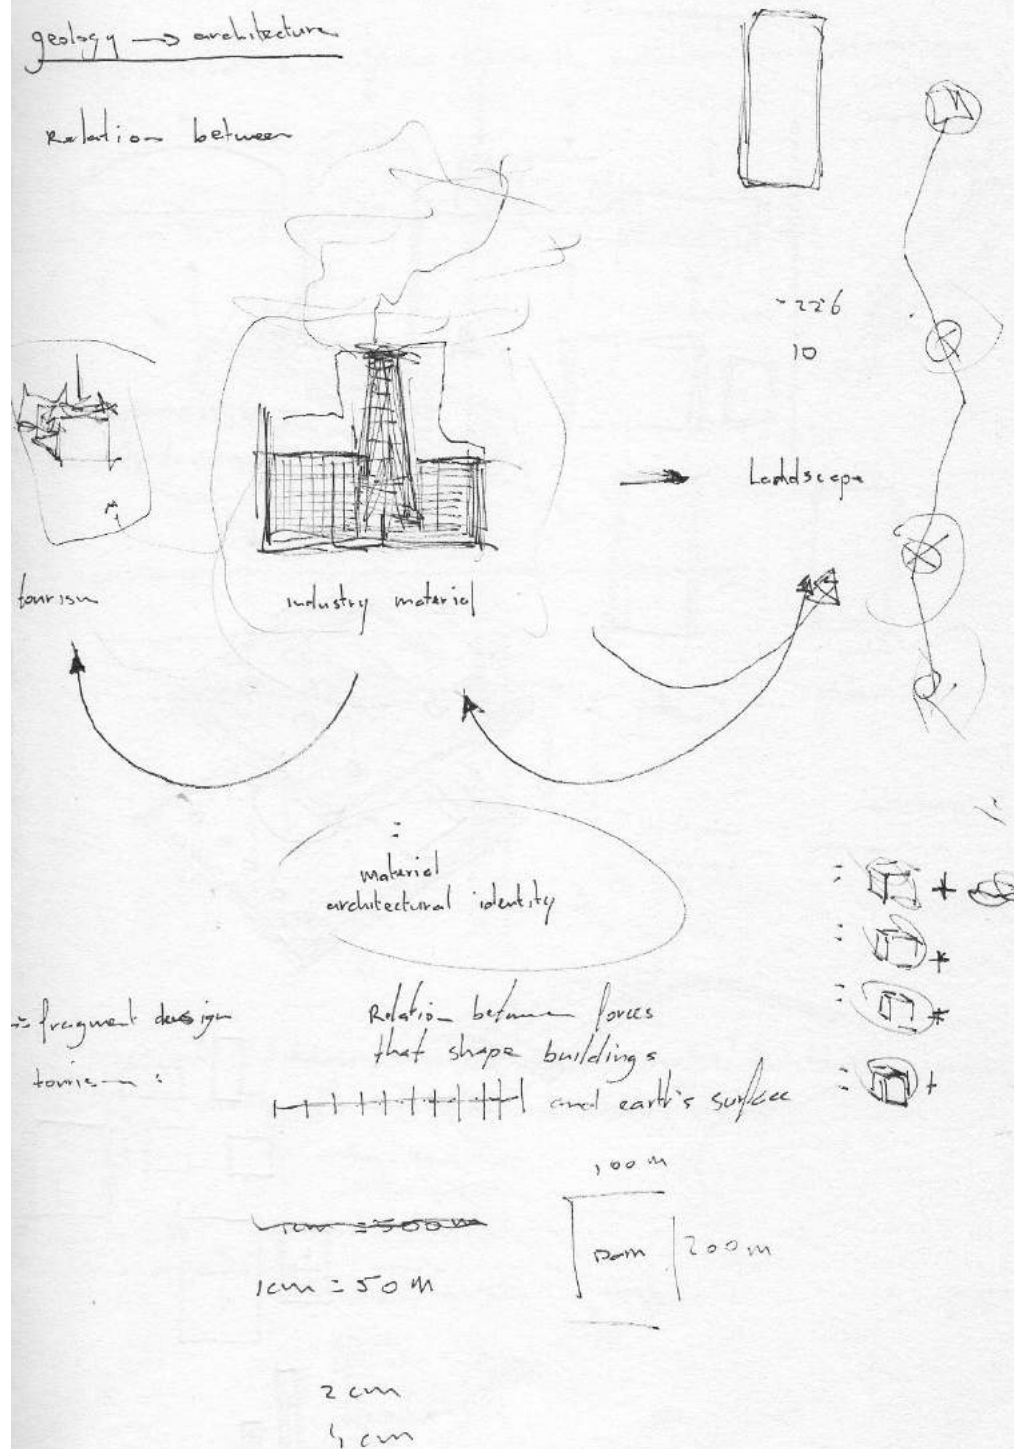 geology → architecture
Relation between
-226
10
Landscape
tourism
industry material
:
material
architectural identity
:
:
:
:
+
+
*
+
:- fragment design
tourism :
Relation between forces
that shape buildings
and earth's surface
100 m
1cm = 500 m
200 m
1cm = 50 m
2 cm
4 cm